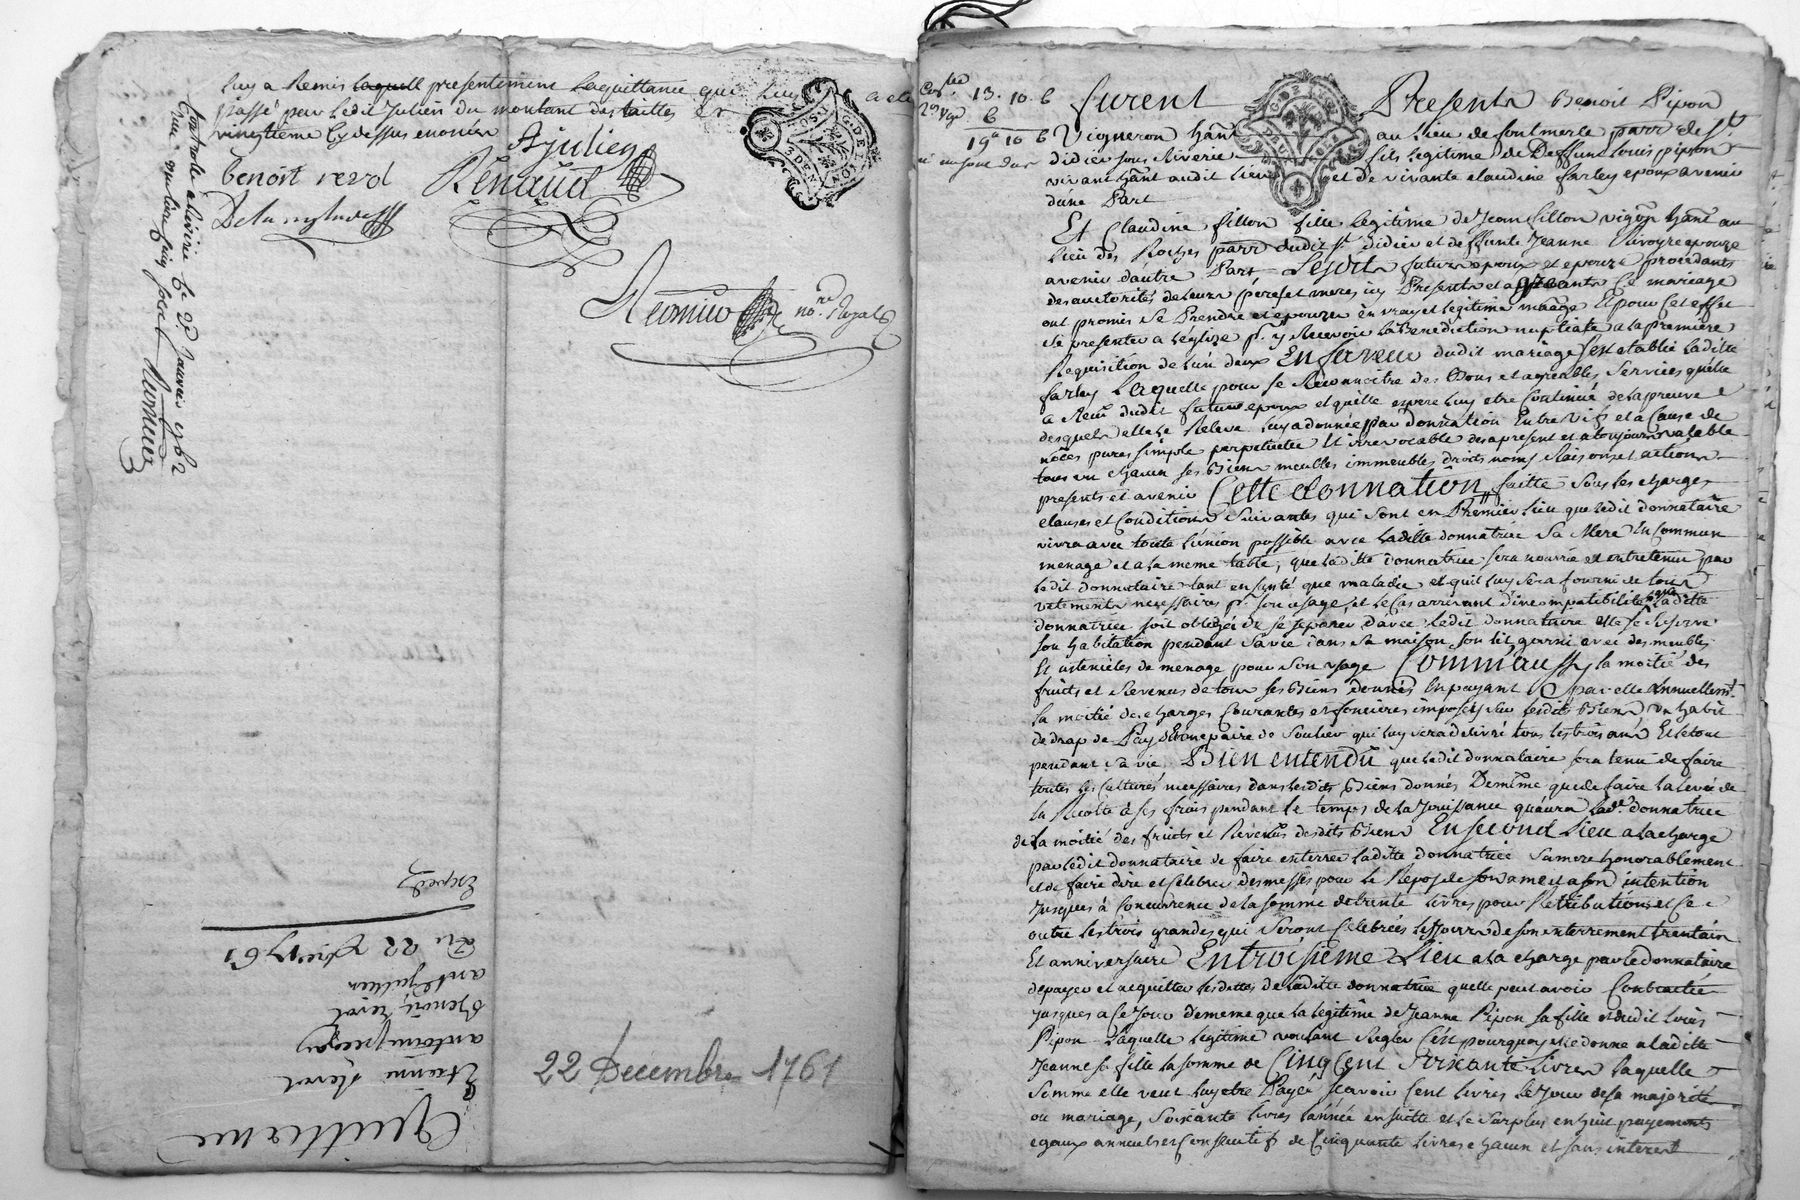 luy a Remis laquell presentement laquittance que luy a ete
passé par ledit Julien du montant des tailles et
vingtieme cy dessus enoncés
Ajulien
benoit revol
Renaud
no.re Royal
Controllé a Riverie le 2.e Janvier 1762
22 Décembre 1761
Exped
Du 22 Xbre 1761
ant Jullien
Benoit revol
Etienne Revol
Quittance
13 . 10 . 6
6
19 10 6
furent Presents Benoit Pipon
Vigneron hant au Lieu de fontmerle parr de St
didier sous Riverie fils legitime de Deffunt Louis pipon
vivant hant audit lieu et de vivante claudine farley epoux avenir
dune Part
Et Claudine fillon fille legitime de Jean fillon vigon hant au
lieu des Roches parr dudit St didier et deffunte Jeanne Rivoyre epouze
avenir dautre Part Lesquels futurs epoux et epouze procedants
des autorités de leurs peres et meres icy Presents et agreants Ce mariage
ont promis se Prendre et epouzer en vray et legitime mariage Et pour Cet effet
se presenter a leglize pr y Recevoir la Benediction nuptiale a la premiere
Requisition de lun deux En faveur dudit mariage sest etablie laditte
farley Laquelle pour se Reconnoitre des Bons et agreables Services quelle
a Receu dudit futur epoux et quelle espere luy etre Continué de la preuve
desquels elle le Releve luy a donnée par donnation Entre Vifs et a Cause de
nôces pures simple perpetuelle Et irrevocable des apresent et a toujours valable
tous un chacun ses Biens meubles immeubles droits noms Raisons et actions
presents et avenir Cette donnation faitte sous les charges
clauses et Conditions Suivantes qui sont en Premier Lieu que ledit donnataire
vivra avec toute lunion possible avec laditte donnatrice sa Mere En Commun
menage et a la meme table, que laditte donnatrice sera nourrie et entretenue par
ledit donnataire tant en santé que maladie et quil luy sera fourni de tous
vetements necessaires pr son usage, et le Cas arrivant dincompatibilité laditte
donnatrice soit obligée de se separer davec ledit donnataire elle se Reserve
son habitation pendant sa vie dans sa maison, son lit garni avec des meubles
Et ustenciles de menage pour son usage Comm'aussy la moitié des
fruits et Revenus de tous ses Biens donnés En payant par elle annuellemt
la moitié des charges Courantes et foncieres imposés sur lesdits Biens un habit
de drap de Pays et une paire de Soulier qui luy sera delivré tous les trois ans Et le tout
pendant sa vie Bien entendu que ledit donnataire sera tenu de faire
toutes les Cultures necessaires dans lesdits Biens donnés De même que de faire la levée de
la Recolte a ses frais pendant le temps de la Jouissance quaura lade donnatrice
de la moitié des fruits et Revenus desdits Biens En Second Lieu a la charge
par ledit donnataire de faire enterrer laditte donnatrice Sa mere honorablement
et de faire dire et Celebrer des messes pour le Repos de son ame et a son intention
Jusques à Concurrence de la somme de trente livres pour Retribution et Ce
outre les trois grandes qui Seront Celebrées les Jours de son enterrement trentain
Et anniversaire En troisieme Lieu a la charge par le donnataire
de payer et acquitter les dettes de laditte donnatrice quelle peut avoir Contractée
Jusques a Ce Jour de meme que la legitime de Jeanne Pipon sa fille et dudit Louis
Pipon Laquelle legitime voulant Regler Cest pourquoy elle donne a laditte
Jeanne sa fille la somme de Cinq Cent Soixante Livres laquelle
Somme elle veut luy etre Payée scavoir Cent livres le Jour de sa majorité
ou mariage, Soixante livres lannée en suitte et le Surplus en huit payements
egaux annuels et Consecutifs de Cinquante livres chacun et sans interet